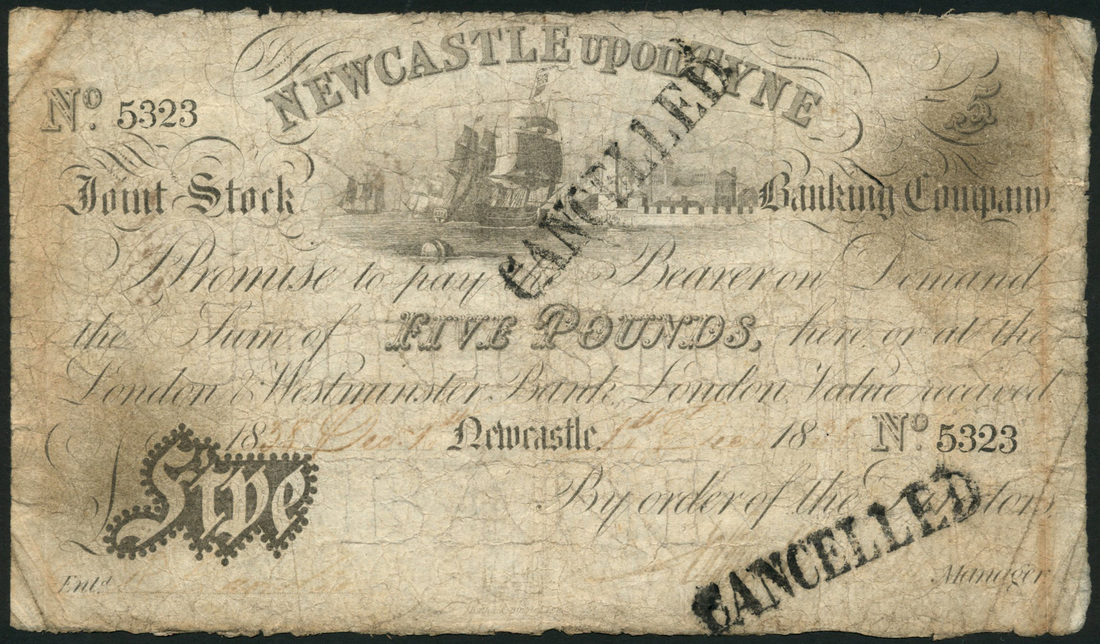 NEWCASTLE upon TYNE
No. 5323
£5
Joint Stock Banking Company
I Promise to pay the Bearer on Demand
the Sum of FIVE POUNDS, here or at the
London & Westminster Bank, London, Value received
1838 Dec Newcastle 18 No. 5323
Five
By order of the Directors
Entd. Manager
CANCELLED
CANCELLED